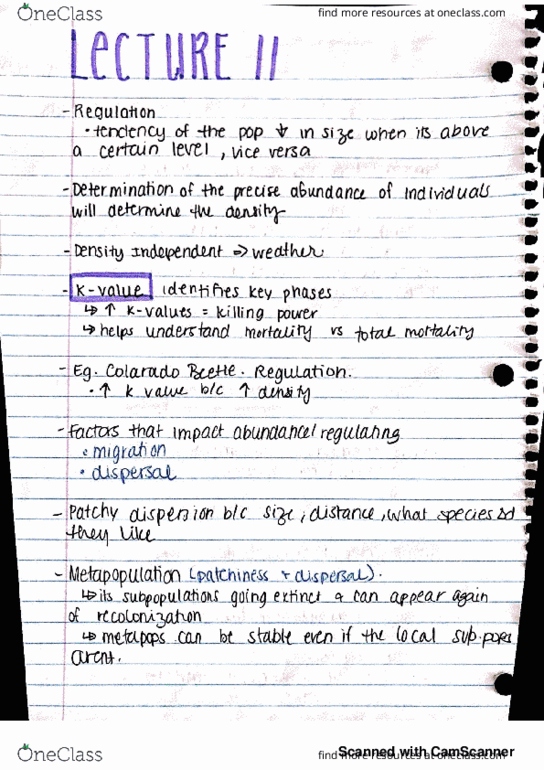 OneClass
find more resources at oneclass.com
LECTURE 11
- Regulation
• tendency of the pop ↓ in size when its above
a certain level, vice versa
- Determination of the precise abundance of individuals
will determine the density
- Density Independent => weather
- K-value identifies key phases
↳ ↑ K-values = killing power
↳ helps understand mortality vs total mortality
- Eg. Colarado Beetle. Regulation.
• ↑ K value b/c ↑ density
- Factors that impact abundance/regulating
• migration
• dispersal
- Patchy dispersion b/c size, distance, what species
they like
- Metapopulation (patchiness + dispersal).
↳ its subpopulations going extinct & can appear again
of recolonization
↳ metapops can be stable even if the local sub.pops
arent.
OneClass
find more resources at oneclass.com
Scanned with CamScanner